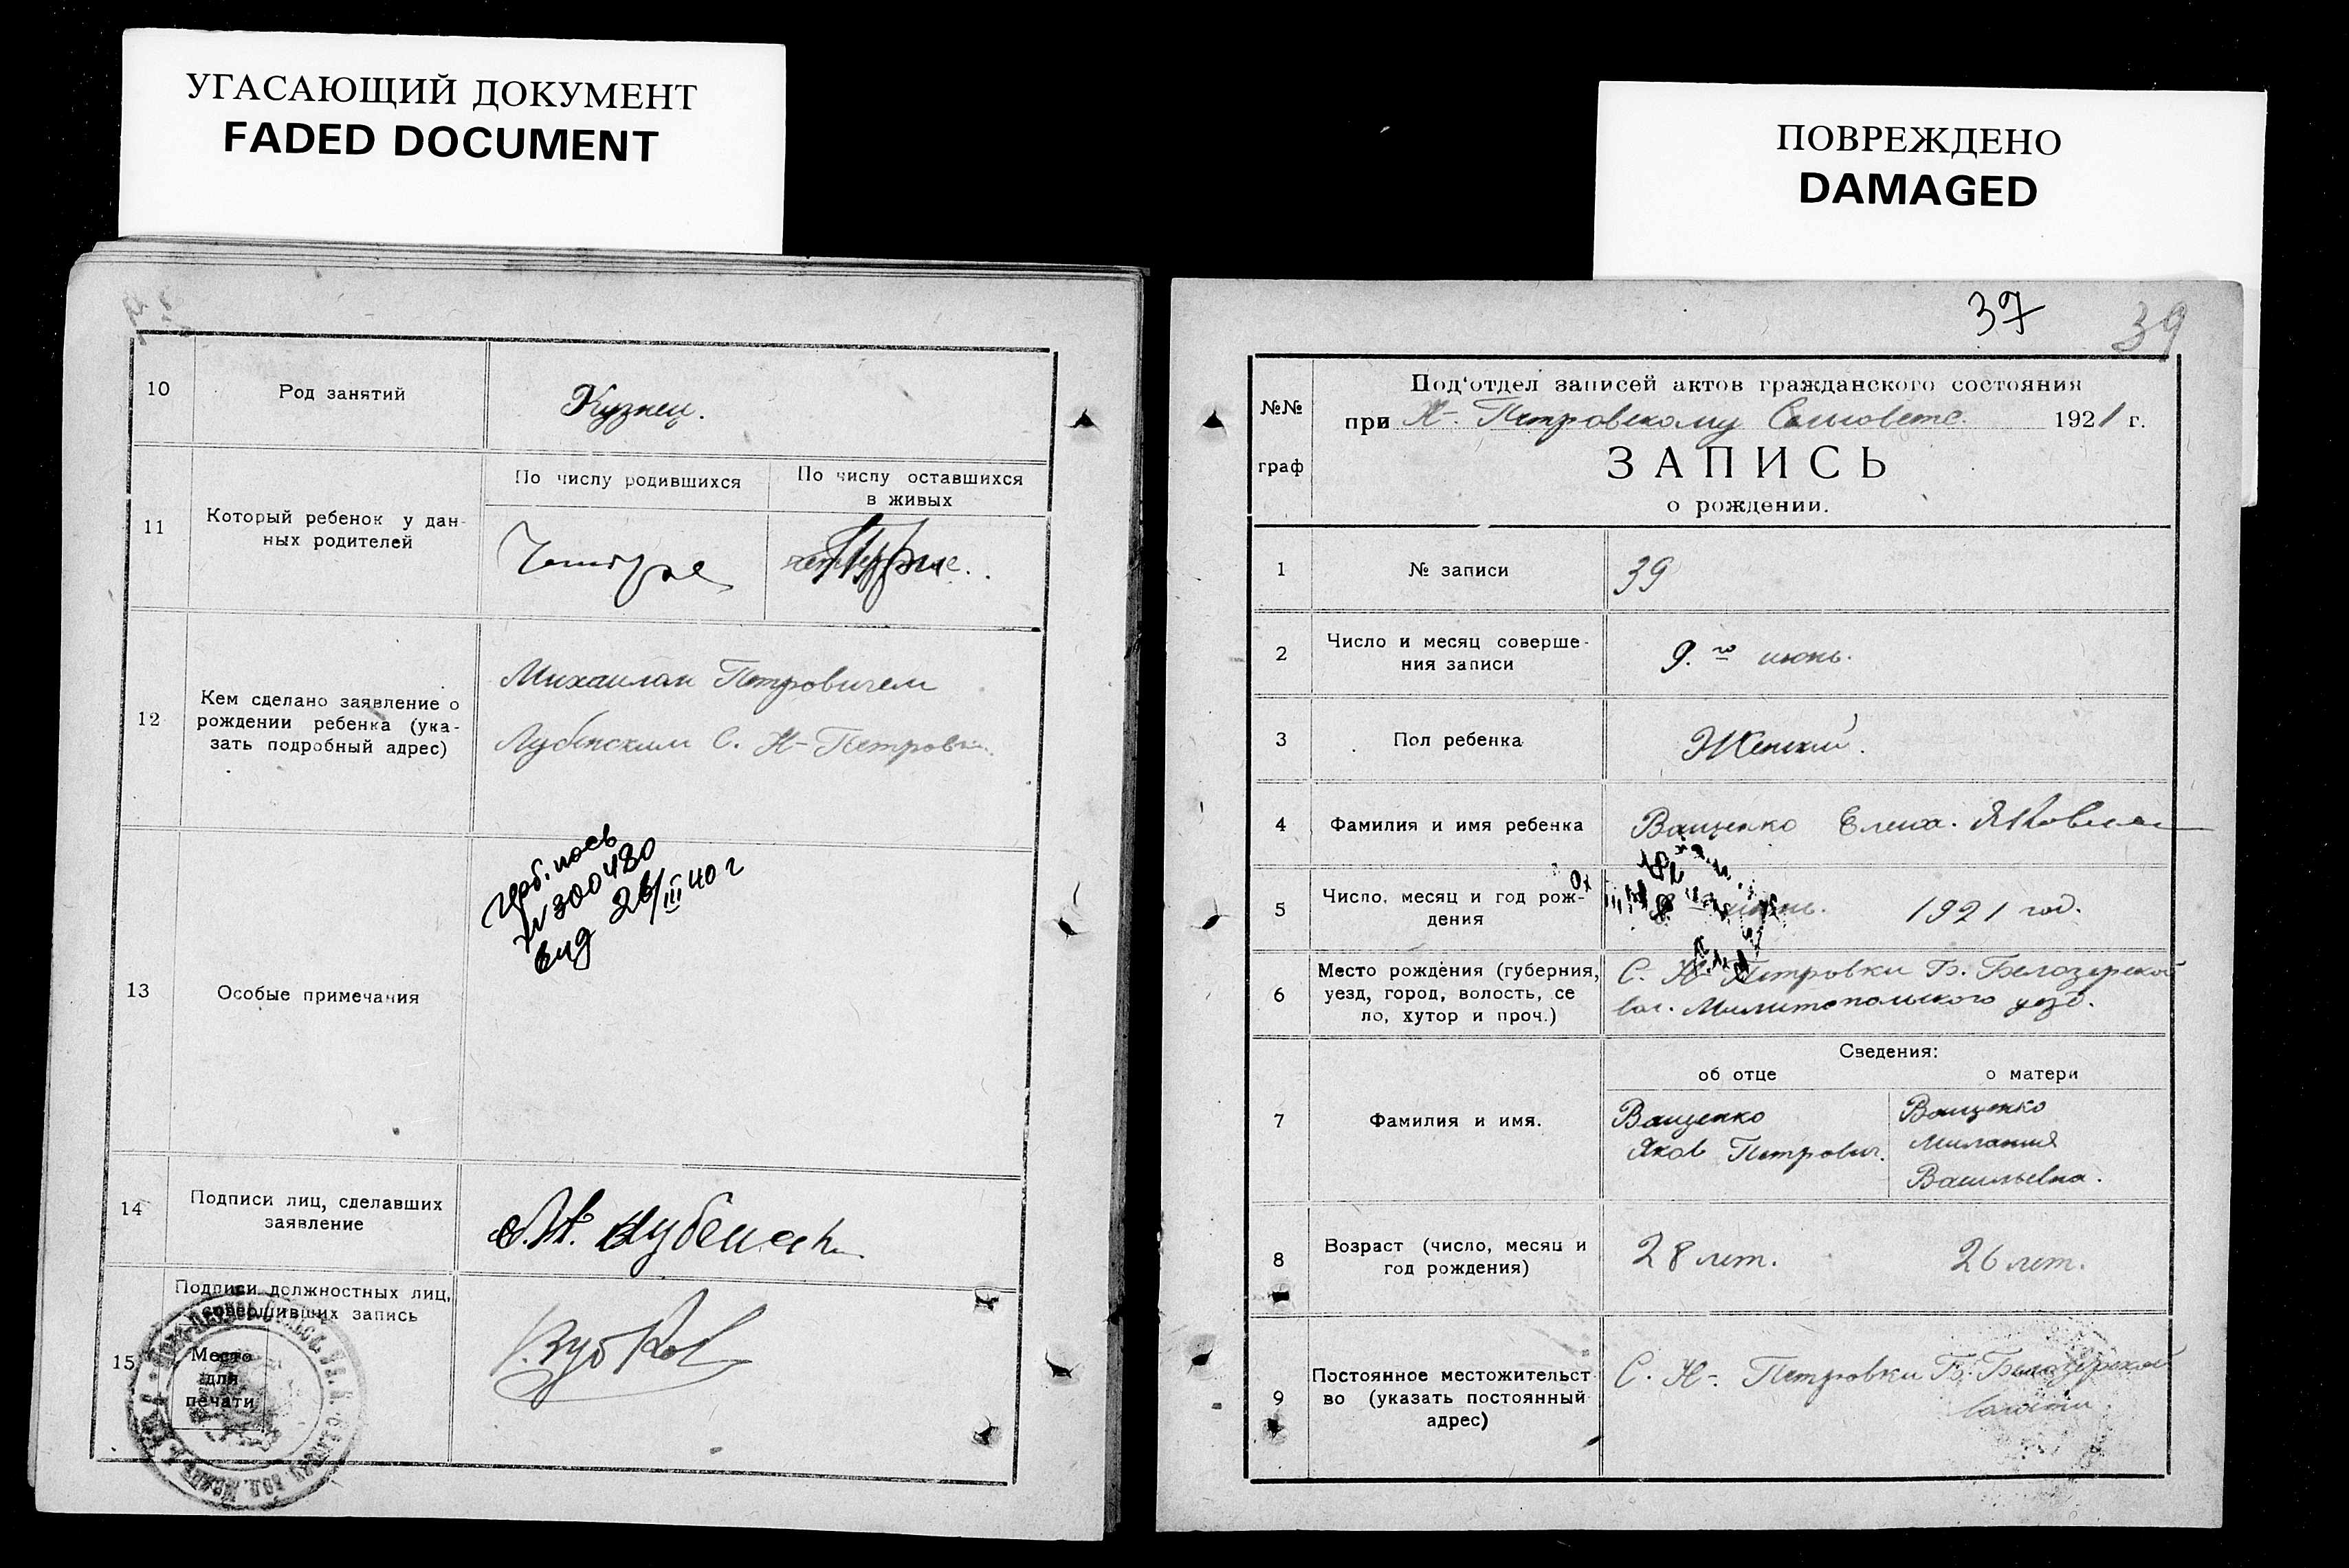 УГАСАЮЩИЙ ДОКУМЕНТ
FADED DOCUMENT
10
Род занятий
Кузнец.
11
Который ребенок у дан-
ных родителей
По числу родившихся
По числу оставшихся
в живых
Четыре
12
Кем сделано заявление о
рождении ребенка (ука-
зать подробный адрес)
Михаилом Петровичем
Лубенским С. Н-Петровки
13
Особые примечания
N 300480
26/III 40 г
14
Подписи лиц, сделавших
заявление
15
Подписи должностных лиц,
совершивших запись
Место
для
печати
Зубков
ПОВРЕЖДЕНО
DAMAGED
37
39
№№
граф
Под'отдел записей актов гражданского состояния
при Н-Петровскому Сельсовете. 1921 г.
ЗАПИСЬ
о рождении.
1
№ записи
39
2
Число и месяц соверше-
ния записи
9.го июнь.
3
Пол ребенка
Женский.
4
Фамилия и имя ребенка
Ващенко Елена.
5
Число, месяц и год рож-
дения
1921 год.
6
Место рождения (губерния,
уезд, город, волость, се
ло, хутор и проч.)
С. Н-Петровки Б. Белозерской
вол. Мелитопольского уезд.
Сведения:
об отце
о матери
7
Фамилия и имя.
Ващенко
Яков Петрович.
Ващенко
Милания
Васильевна.
8
Возраст (число, месяц и
год рождения)
28 лет.
26 лет.
9
Постоянное местожительст
во (указать постоянный
адрес)
С. Н-. Петровки Б. Белозерской
волости.